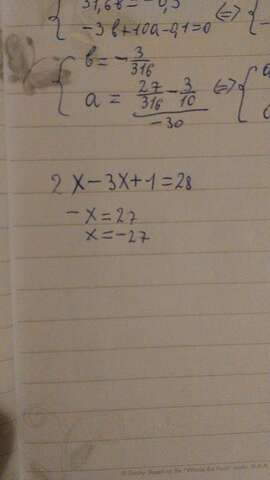 31,6b=-0,3
-3b+10a-0,1=0 <=>
b=-3/316
a = (27/316-3/10)/-30 <=>
2x-3x+1=28
-x=27
x=-27